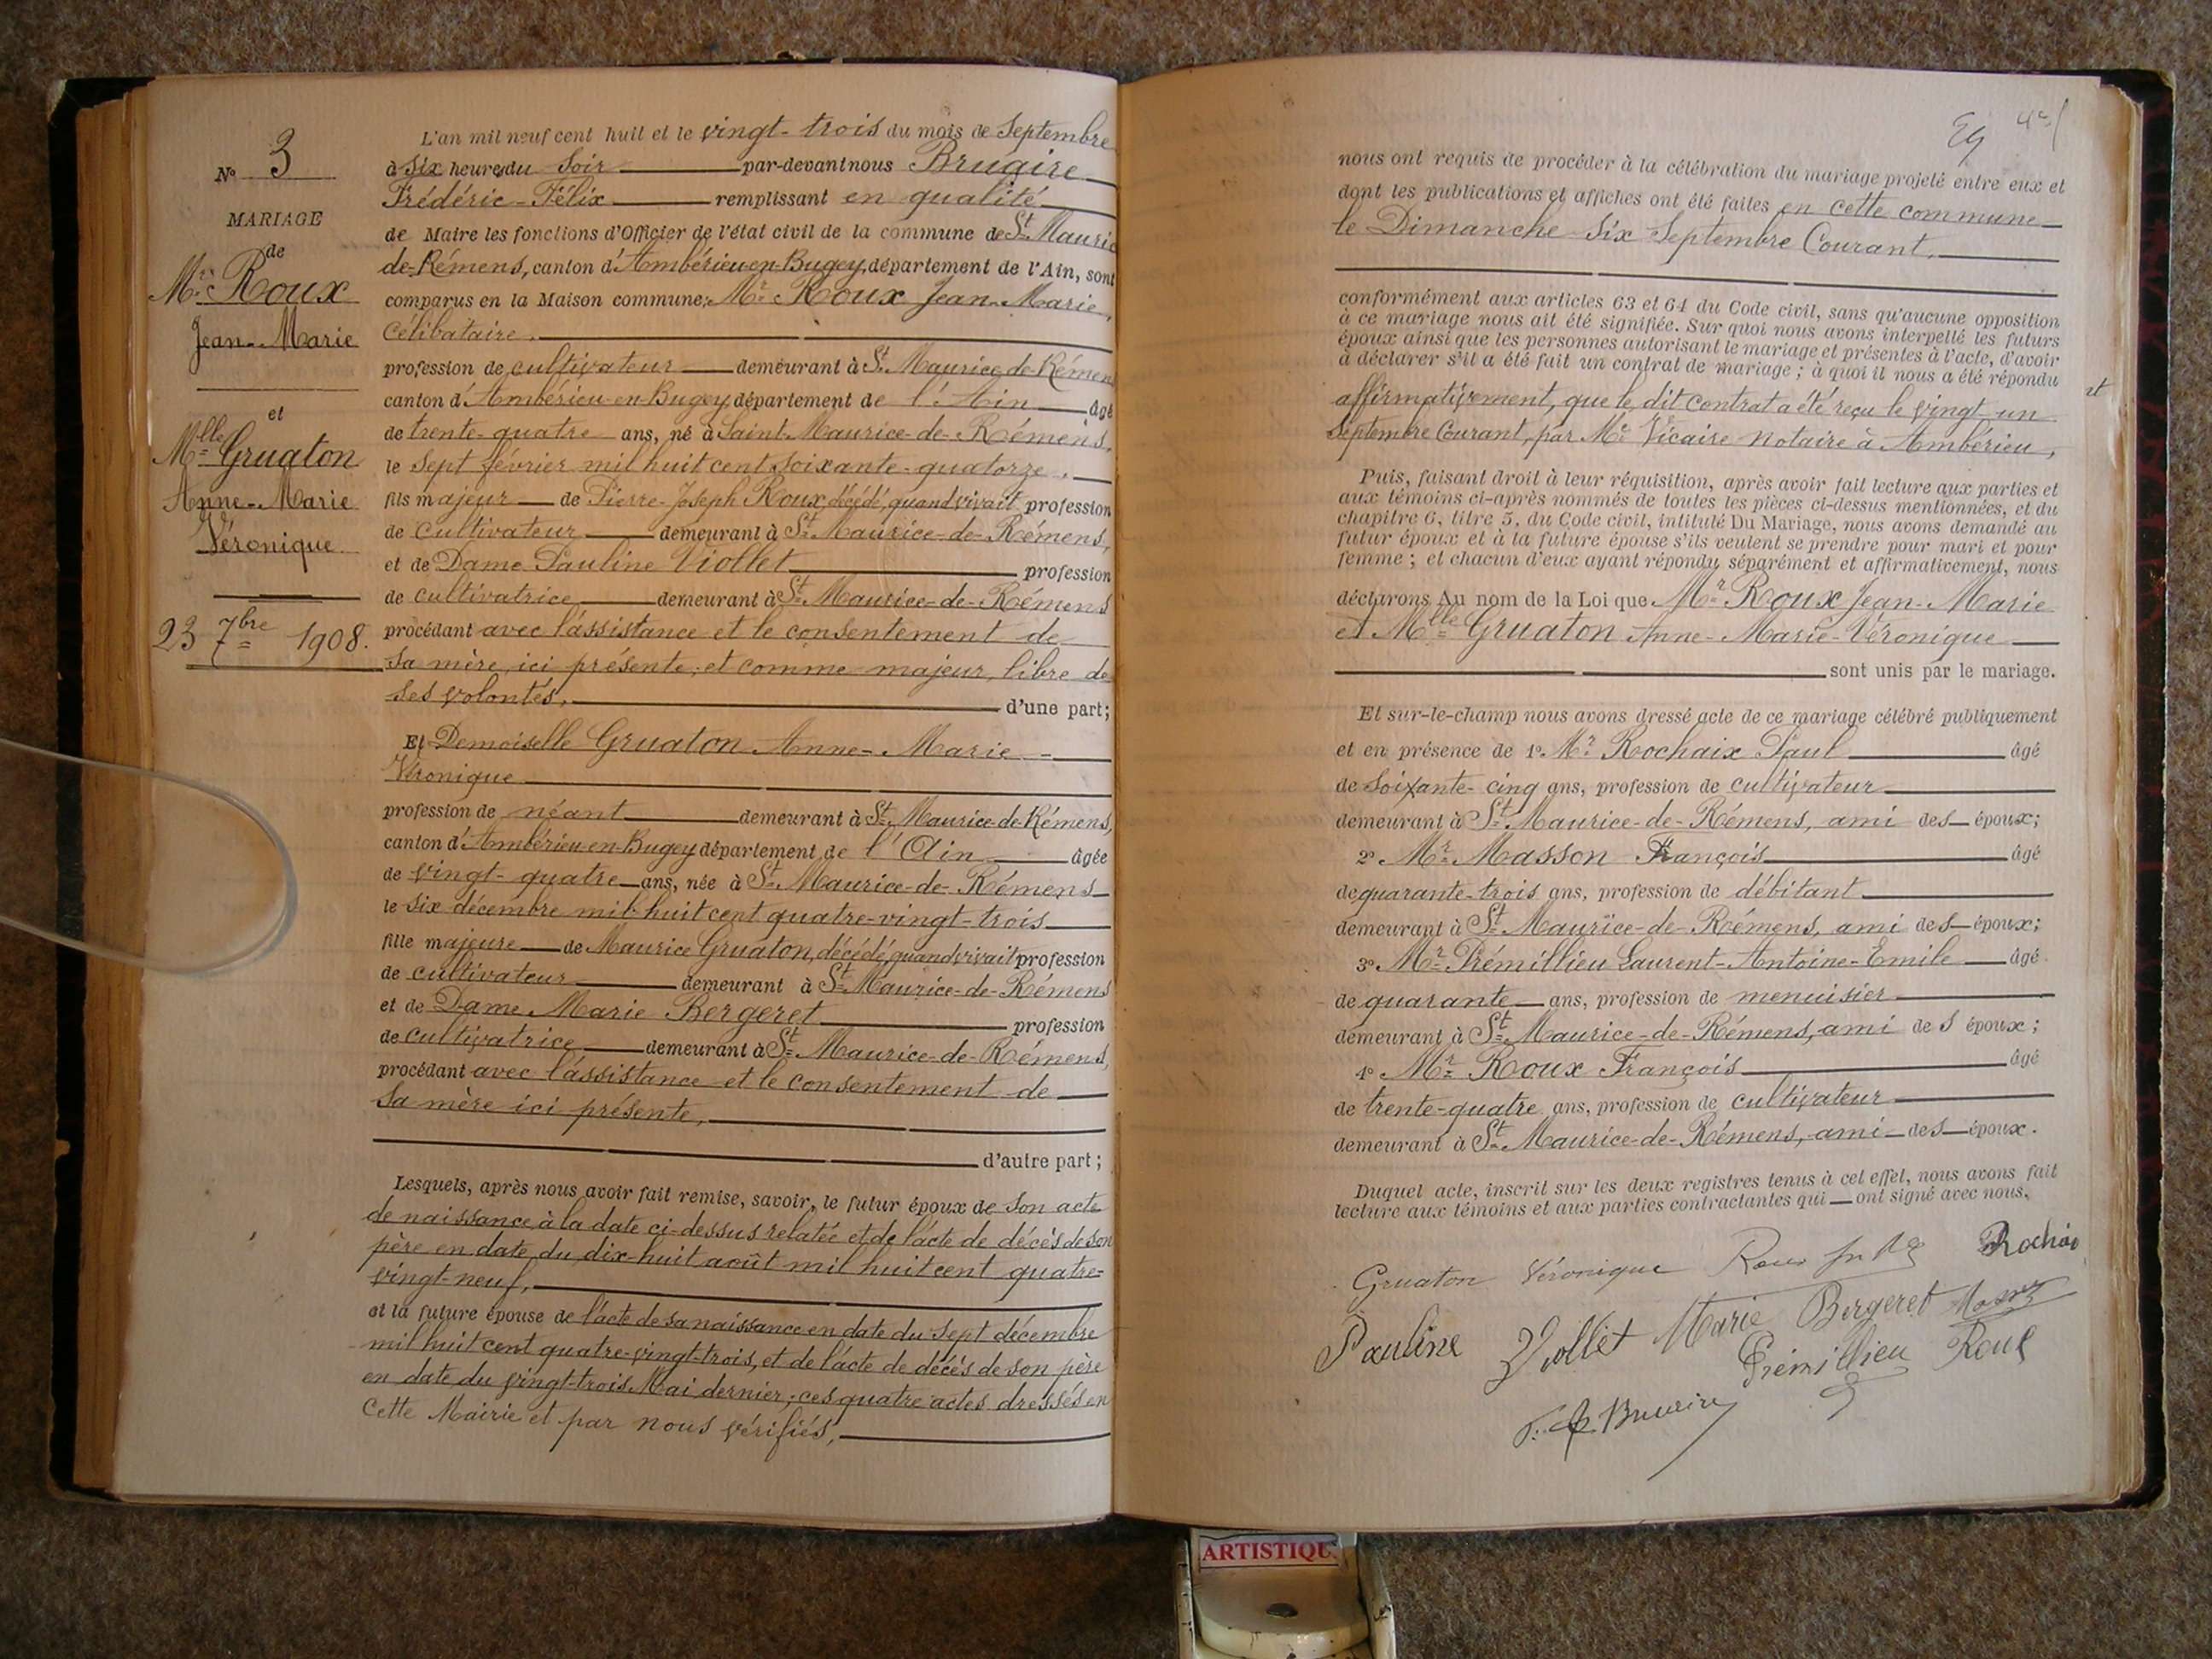 N° 3
MARIAGE
de
Mr. Roux
Jean-Marie
et
Mlle Gruaton
Anne-Marie
Véronique
23 7bre 1908.
L'an mil neuf cent huit et le vingt-trois du mois de Septembre
à six heures du Soir par-devant nous Brugire
Frédéric-Félix remplissant en qualité
de Maire les fonctions d'Officier de l'état civil de la commune de St. Maurice
de-Rémens, canton d'Ambérieu-en-Bugey, département de l'Ain, sont
comparus en la Maison commune, Mr. Roux Jean-Marie,
Célibataire.
profession de cultivateur demeurant à St. Maurice-de-Rémens
canton d'Ambérieu-en-Bugey, département de l'Ain âgé
de trente-quatre ans, né à Saint-Maurice-de-Rémens,
le sept février mil huit cent soixante-quatorze.
fils majeur de Pierre-Joseph Roux, décédé, quand vivait profession
de cultivateur demeurant à St. Maurice-de-Rémens,
et de Dame Pauline Viollet profession
de cultivatrice demeurant à St. Maurice-de-Rémens
procédant avec l'assistance et le consentement de
sa mère, ici présente, et comme majeur, libre de
ses volontés, d'une part;
Et Demoiselle Gruaton Anne-Marie-
Véronique
profession de néant demeurant à St. Maurice-de-Rémens,
canton d'Ambérieu-en-Bugey département de l'Ain âgée
de vingt-quatre ans, née à St. Maurice-de-Rémens
le six décembre mil huit cent quatre-vingt-trois
fille majeure de Maurice Gruaton, décédé, quand vivait profession
de cultivateur demeurant à St. Maurice-de-Rémens
et de Dame Marie Bergeret profession
de cultivatrice demeurant à St. Maurice-de-Rémens,
procédant avec l'assistance et le consentement de
sa mère ici présente,
d'autre part;
Lesquels, après nous avoir fait remise, savoir, le futur époux de son acte
de naissance à la date ci-dessus relatée et de l'acte de décès de son
père en date du dix-huit août mil huit cent quatre-
vingt-neuf,
et la future épouse de l'acte de sa naissance en date du sept décembre
mil huit cent quatre-vingt-trois, et de l'acte de décès de son père
en date du vingt-trois Mai dernier; ces quatre actes dressés en
cette Mairie et par nous vérifiés,
nous ont requis de procéder à la célébration du mariage projeté entre eux et
dont les publications et affiches ont été faites en cette commune
le Dimanche six Septembre Courant,
conformément aux articles 63 et 64 du Code civil, sans qu'aucune opposition
à ce mariage nous ait été signifiée. Sur quoi nous avons interpellé les futurs
époux ainsi que les personnes autorisant le mariage et présentes à l'acte, d'avoir
à déclarer s'il a été fait un contrat de mariage; à quoi il nous a été répondu
affirmativement, que le dit contrat a été reçu le vingt-un
Septembre Courant, par Me. Vicaire notaire à Ambérieu,
Puis, faisant droit à leur réquisition, après avoir fait lecture aux parties et
aux témoins ci-après nommés de toutes les pièces ci-dessus mentionnées, et du
chapitre 6, titre 5, du Code civil, intitulé Du Mariage, nous avons demandé au
futur époux et à la future épouse s'ils veulent se prendre pour mari et pour
femme; et chacun d'eux ayant répondu séparément et affirmativement, nous
déclarons Au nom de la Loi que Mr. Roux Jean-Marie
et Mlle Gruaton Anne-Marie-Véronique
sont unis par le mariage.
Et sur-le-champ nous avons dressé acte de ce mariage célébré publiquement
et en présence de 1° Mr. Rochaix Paul âgé
de soixante-cinq ans, profession de cultivateur
demeurant à St. Maurice-de-Rémens, ami des époux;
2° Mr. Masson François âgé
de quarante-trois ans, profession de débitant
demeurant à St. Maurice-de-Rémens, ami des époux;
3° Mr. Prémillieu Laurent-Antoine-Emile âgé
de quarante ans, profession de menuisier
demeurant à St. Maurice-de-Rémens, ami des époux;
4° Mr. Roux François âgé
de trente-quatre ans, profession de cultivateur
demeurant à St. Maurice-de-Rémens, ami des époux.
Duquel acte, inscrit sur les deux registres tenus à cet effet, nous avons fait
lecture aux témoins et aux parties contractantes qui ont signé avec nous.
Gruaton Véronique Roux
Pauline Viollet Marie Bergeret
Prémillieu Roux
ARTISTIQU